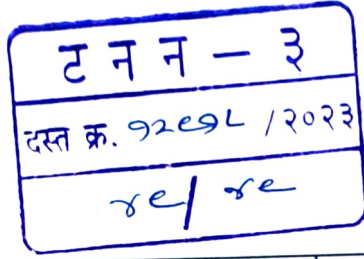 ट न न – ३
दस्त क्र. १२९१८ /२०२३
४९/ ४९